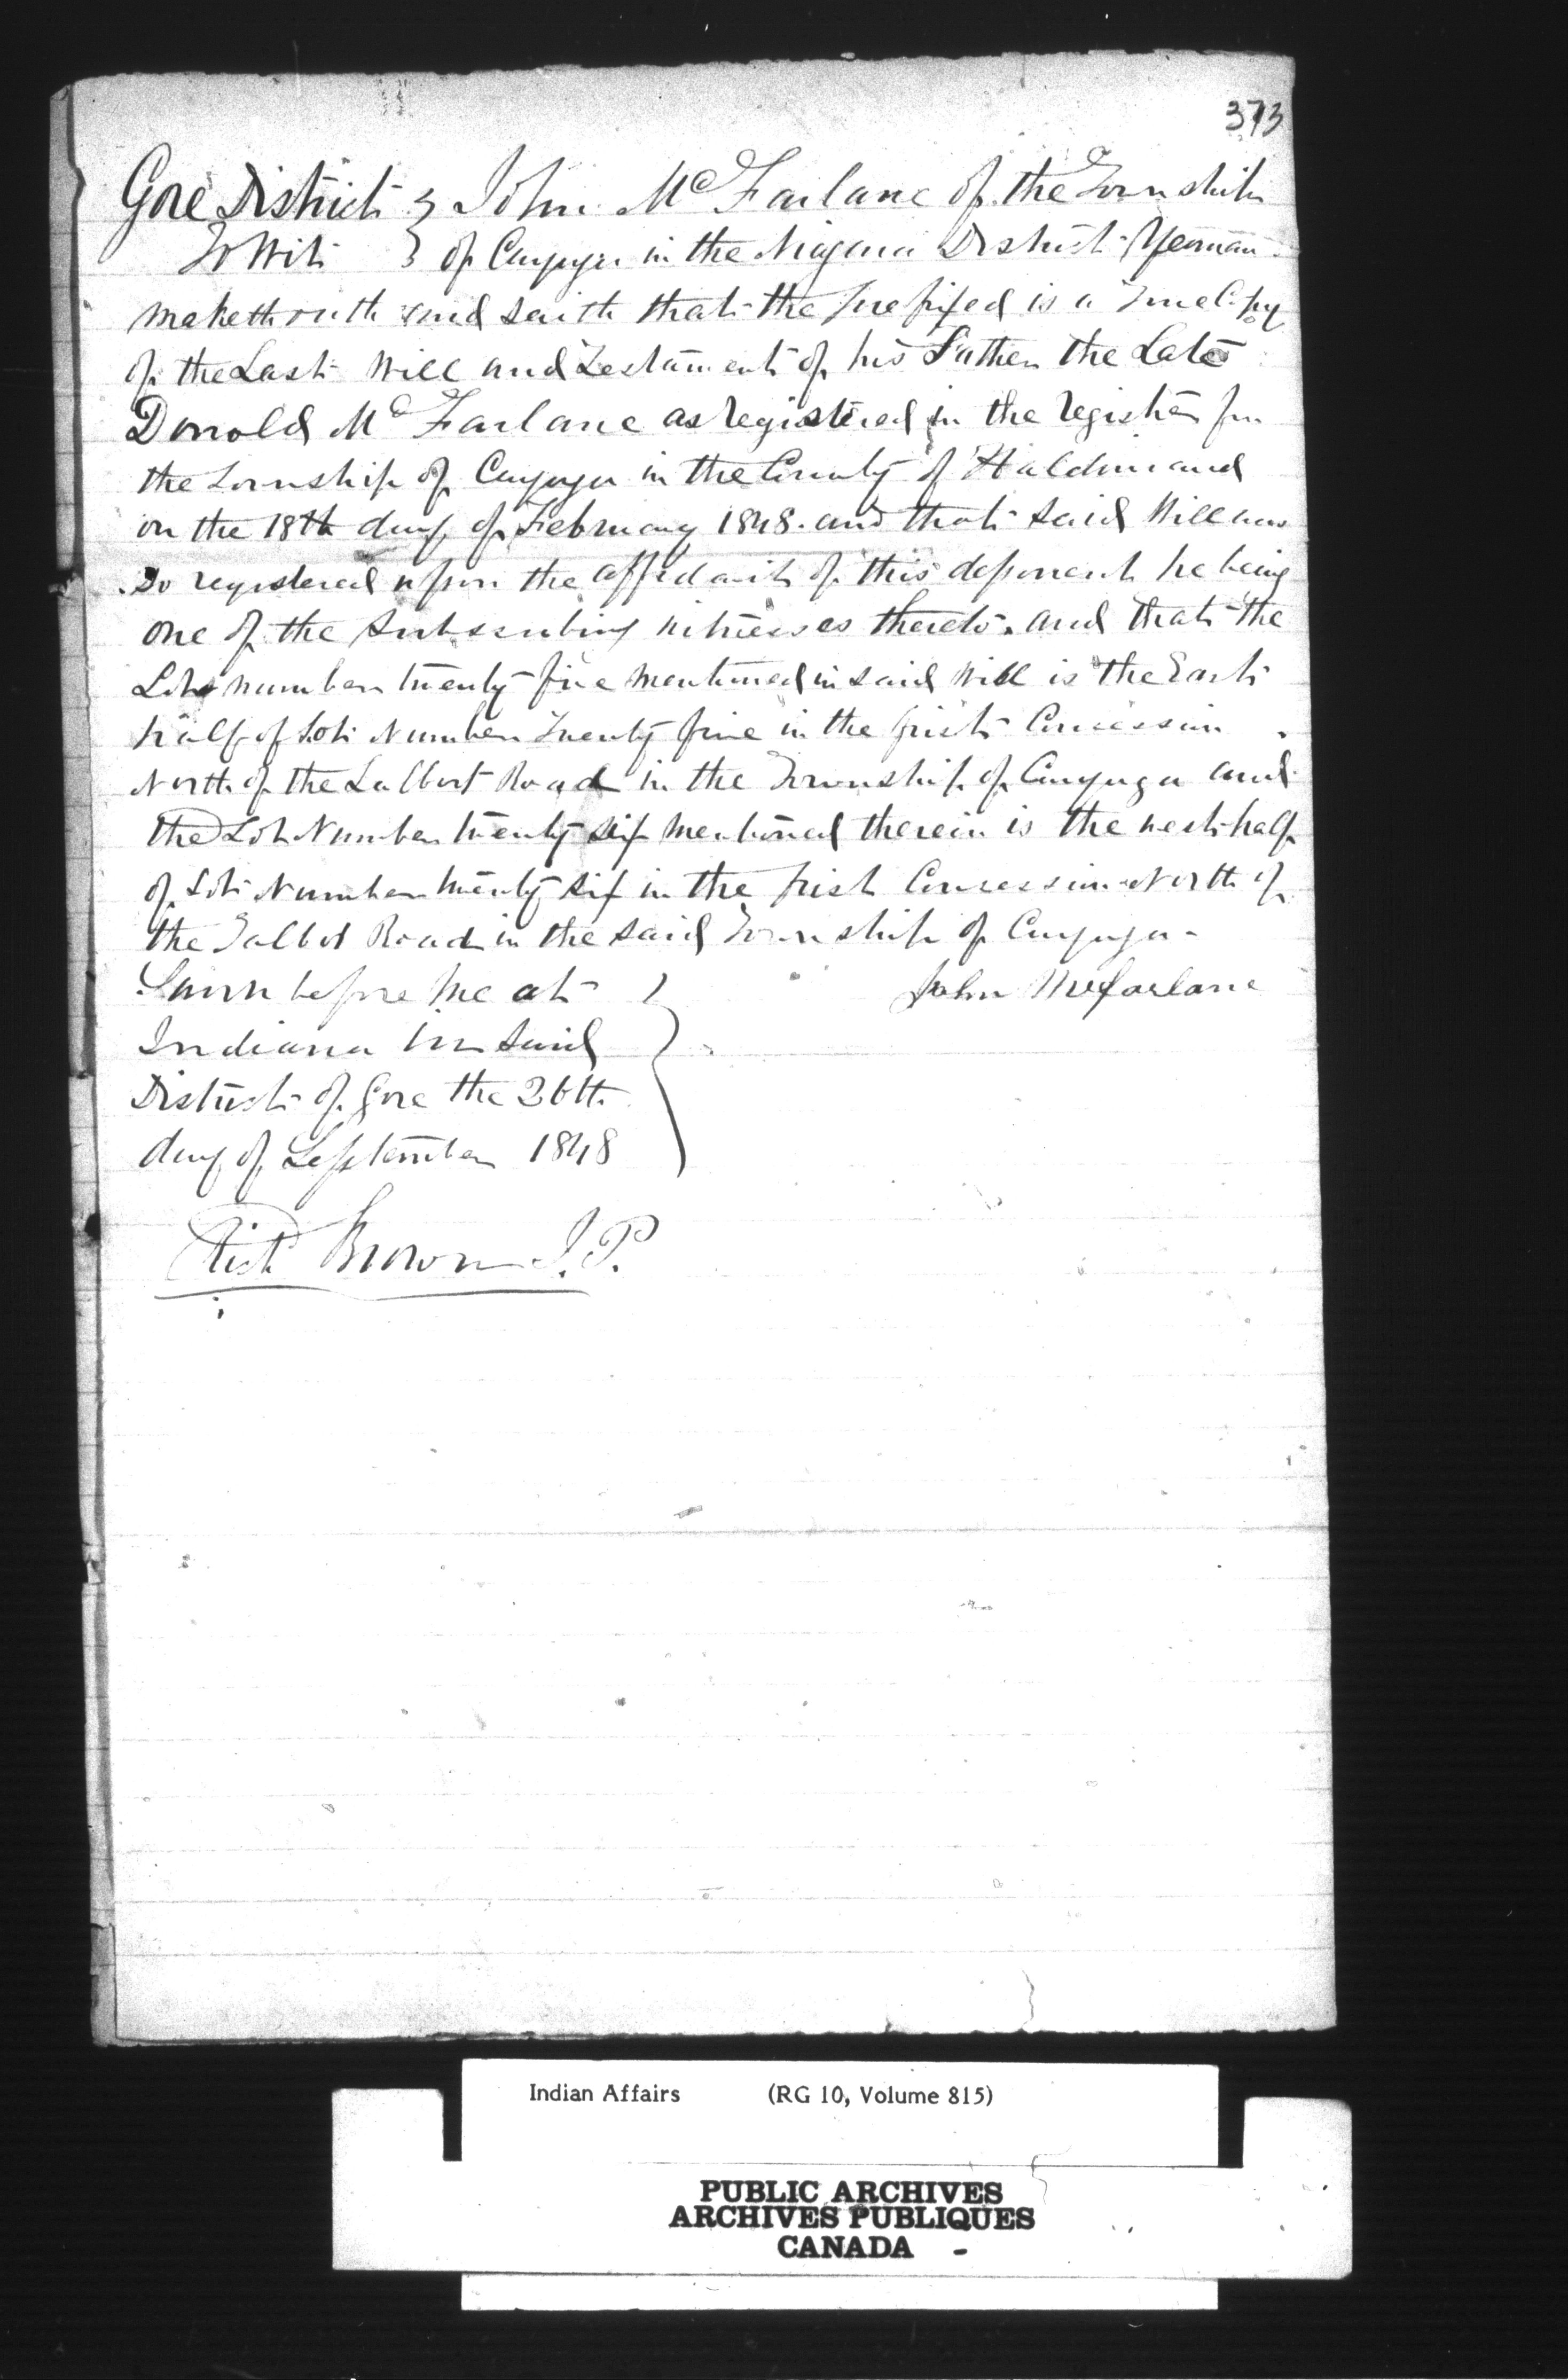 373
Gore District } John McFarlane of the Township
To Wit } of Cayuga in the Niagara District Yeoman
maketh oath and saith that the prefixed is a True Copy
of the Last Will and Testament of his Father the Late
Donold McFarlane as registered in the register for
the Township of Cayuga in the County of Haldimand
on the 18th day of February 1848. and that said Will was
so registered upon the affidavit of this deponent he being
one of the subscribing witnesses thereto. and that the
Lot number twenty five mentioned in said Will is the East
half of Lot Number Twenty five in the first Concession
North of the Talbot Road in the Township of Cayuga and
the Lot Number twenty six mentioned therein is the west half
of Lot Number twenty six in the first Concession North of
the Talbot Road in the said Township of Cayuga -
Sworn before me at } John McFarlane
Indiana in said
District of Gore the 26th
day of September 1848
Brown J.P.
Indian Affairs (RG 10, Volume 815)
PUBLIC ARCHIVES
ARCHIVES PUBLIQUES
CANADA